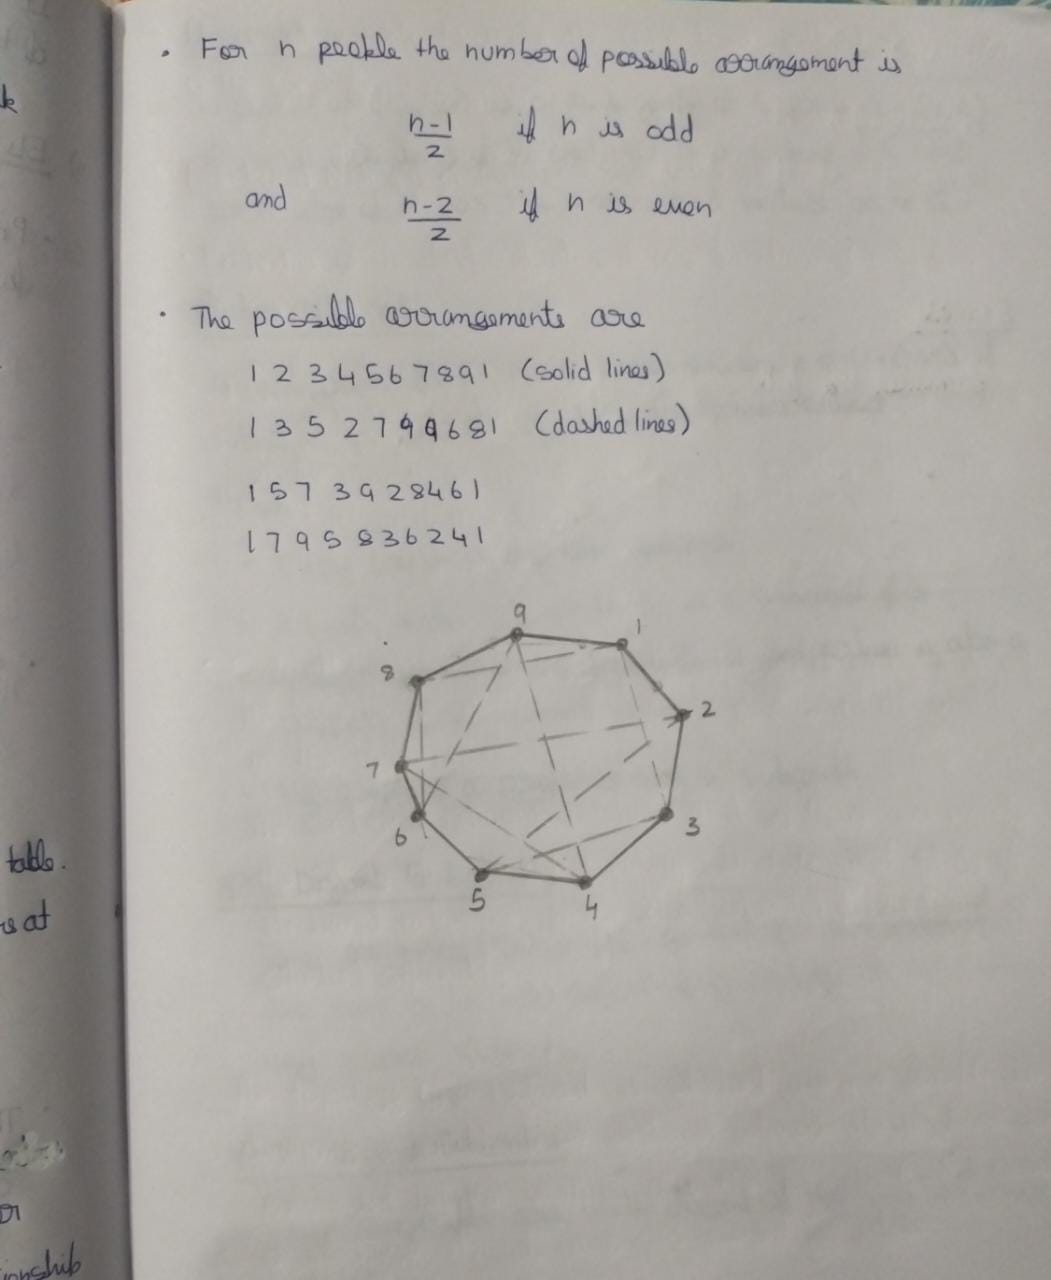 k
• For n people the number of possible arrangement is
n-1
2
if n is odd
and
n-2
2
if n is even
• The possible arrangements are
1 2 3 4 5 6 7 8 9 1 (solid lines)
1 3 5 2 7 4 9 6 8 1 (dashed lines)
1 5 7 3 9 2 8 4 6 1
1 7 9 5 8 3 6 2 4 1
9
1
8
2
7
3
6
5
4
table.
at